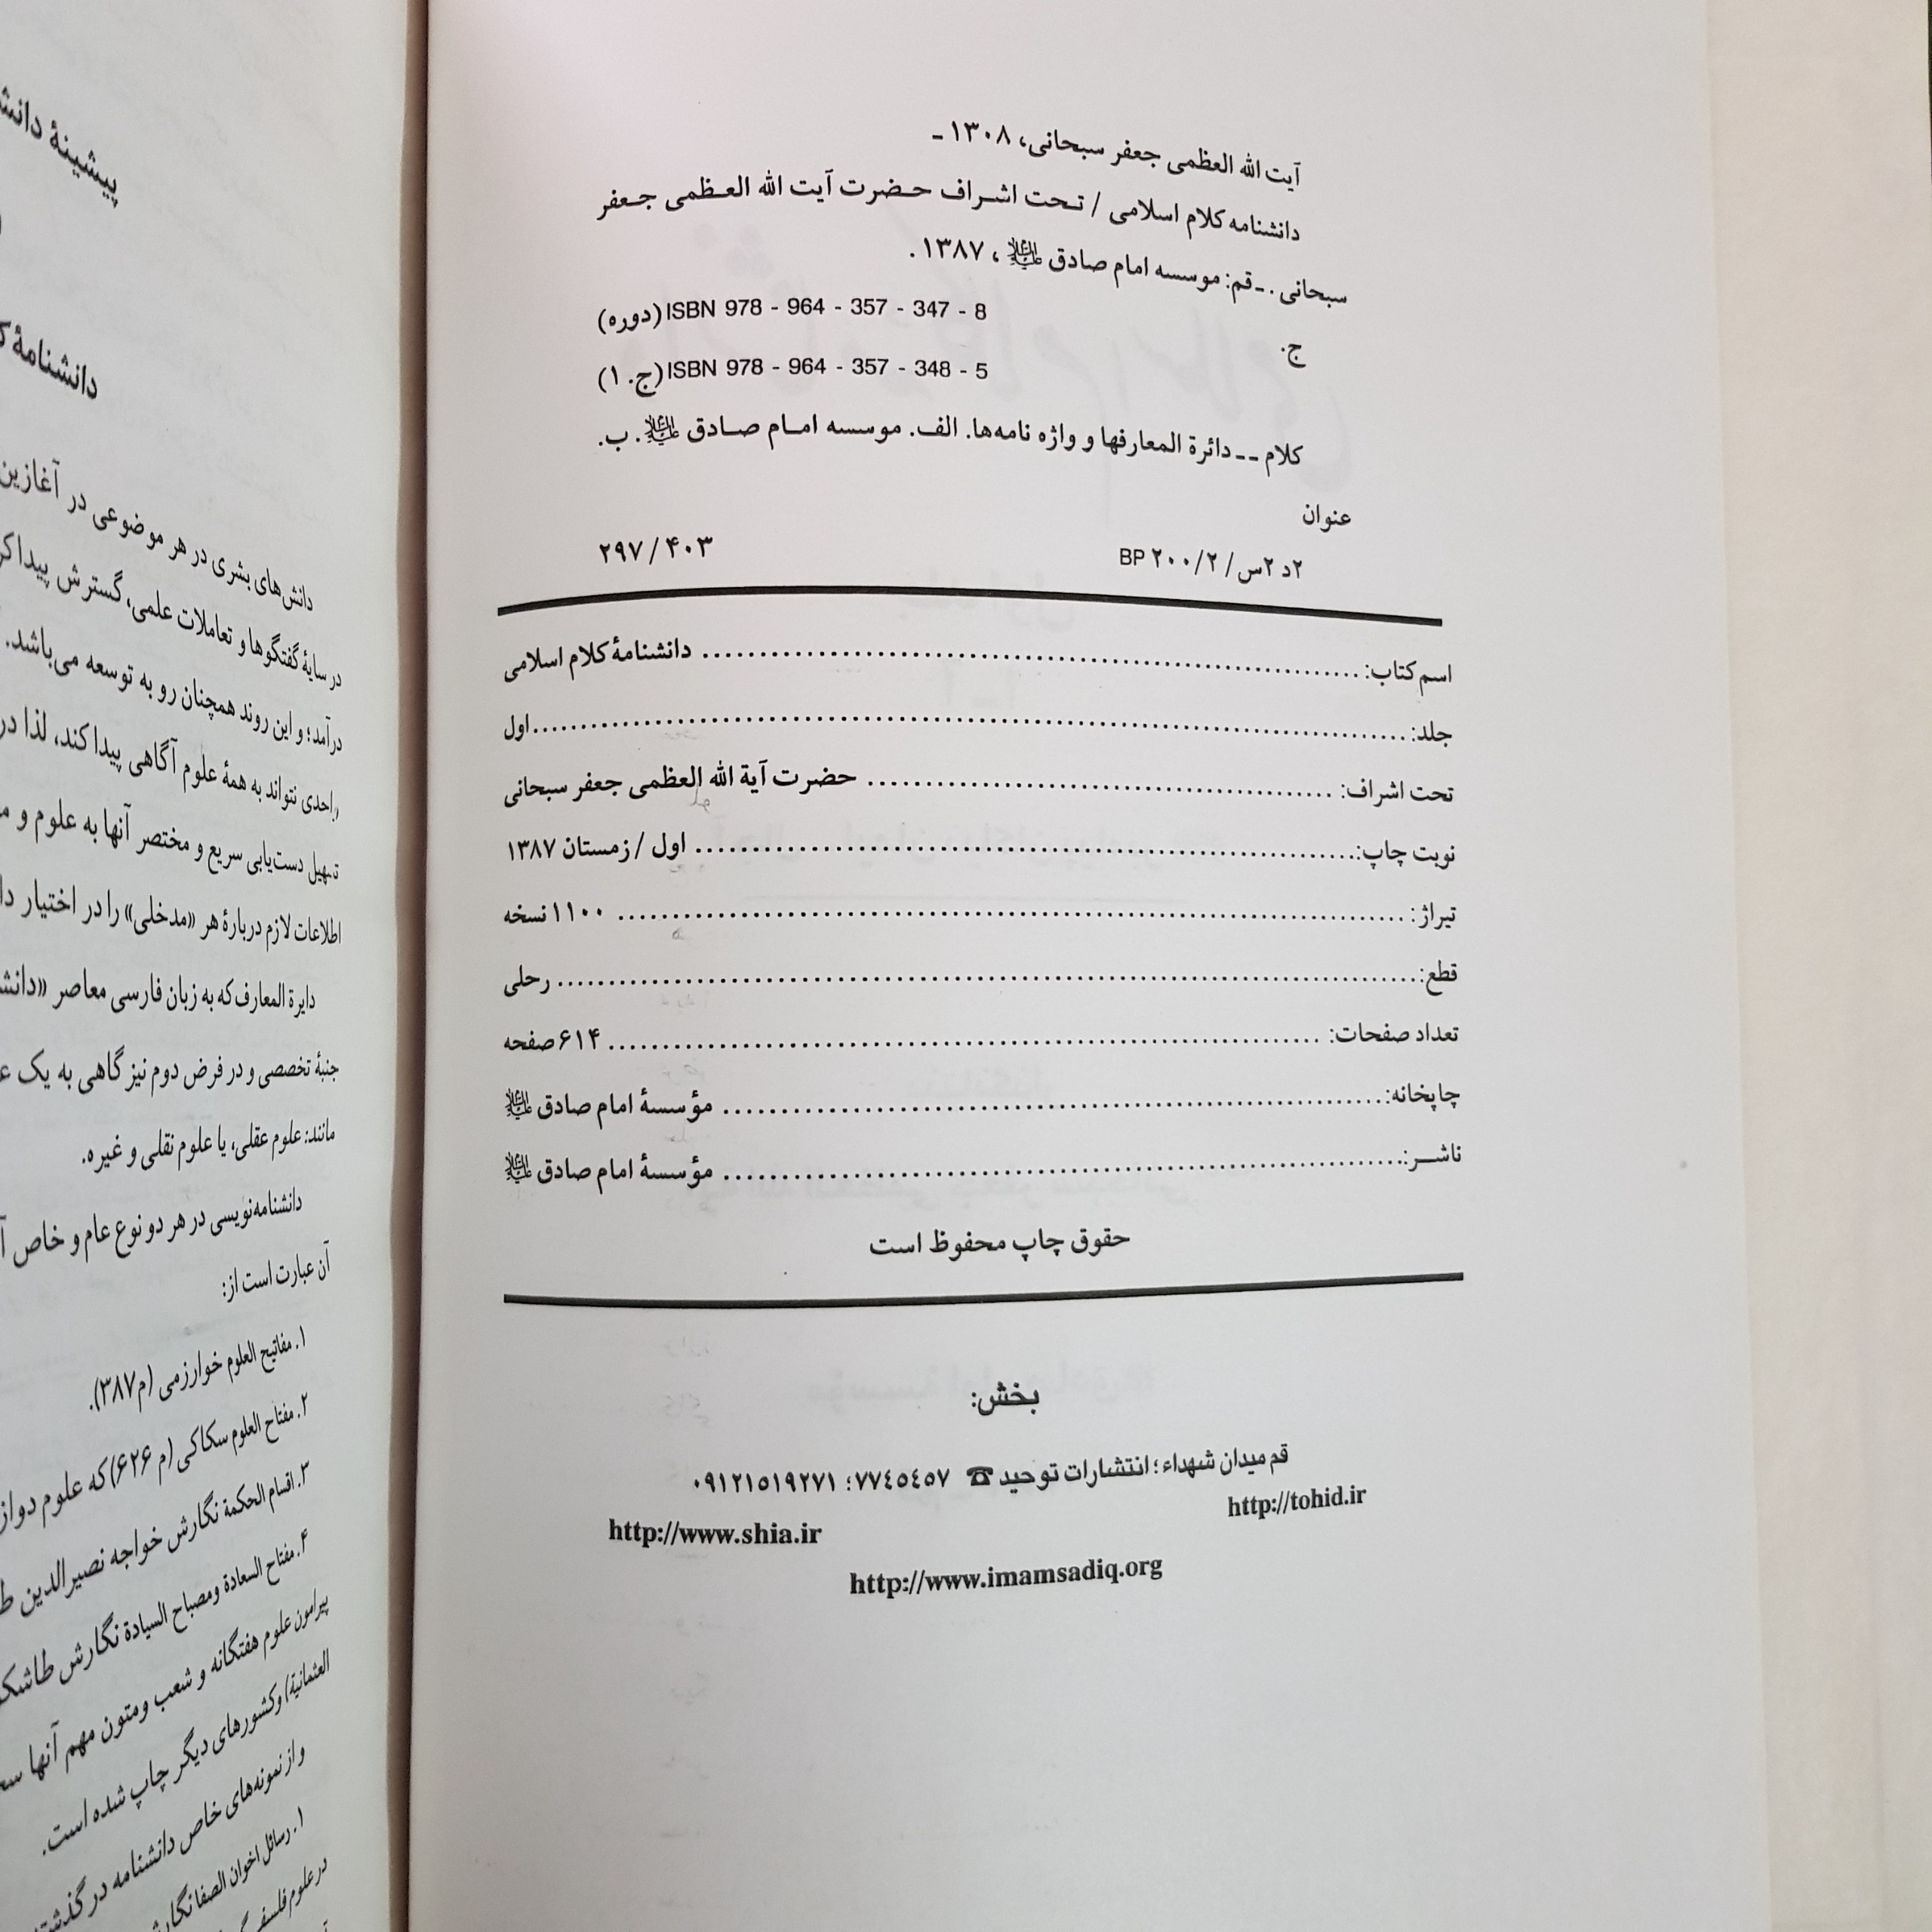 آیت الله العظمی جعفر سبحانی، ۱۳۰۸ ـ
دانشنامه کلام اسلامی / تحت اشراف حضرت آیت الله العظمی جعفر
سبحانی . ـ قم: موسسه امام صادق علیه السلام، ۱۳۸۷ .
ISBN 978 - 964 - 357 - 347 - 8 (دوره)
ج.
ISBN 978 - 964 - 357 - 348 - 5 (ج. ۱)
کلام ـ ـ دائرة المعارفها و واژه نامه‌ها. الف. موسسه امام صادق علیه السلام. ب.
عنوان
۲د ۲س/ ۲/ ۲۰۰ BP ۲۹۷/۴۰۳
اسم کتاب: ........ دانشنامهٔ کلام اسلامی
جلد: ........ اول
تحت اشراف: ........ حضرت آیة الله العظمی جعفر سبحانی
نوبت چاپ: ........ اول / زمستان ۱۳۸۷
تیراژ: ........ ۱۱۰۰ نسخه
قطع: ........ رحلی
تعداد صفحات: ........ ۶۱۴ صفحه
چاپخانه: ........ مؤسسهٔ امام صادق علیه السلام
ناشـر: ........ مؤسسهٔ امام صادق علیه السلام
حقوق چاپ محفوظ است
بخش:
قم میدان شهداء؛ انتشارات توحید ☎ ۷۷٤٥٤٥۷؛ ۰۹۱۲۱٥۱۹۲۷۱
http://tohid.ir
http://www.shia.ir
http://www.imamsadiq.org
پیشینهٔ
دانشنامهٔ
دانش‌های بشری در هر موضوعی در آغازین
در سایهٔ گفتگوها و تعاملات علمی، گسترش
درآمد؛ و این روند همچنان رو به توسعه می‌باشد.
واحدی نتواند به همهٔ علوم آگاهی پیدا کند، لذا در
تسهیل دست‌یابی سریع و مختصر آنها به علوم و
اطلاعات لازم دربارهٔ هر «مدخلی» را در اختیار
دایرة المعارف که به زبان فارسی معاصر
جنبهٔ تخصصی و در فرض دوم نیز گاهی به یک
مانند: علوم عقلی، یا علوم نقلی و غیره.
دانشنامه‌نویسی در هر دو نوع عام و خاص
آن عبارت است از:
۱. مفاتیح العلوم خوارزمی (م۳۸۷).
۲. مفتاح العلوم سکاکی (م ۶۲۶) که علوم
۳. اقسام الحکمة نگارش خواجه نصیرالدین
۴. مفتاح السعادة ومصباح السیادة نگارش
پیرامون علوم هفتگانه و شعب ومتون مهم آنها
العثمانیة) وکشورهای دیگر چاپ شده است.
و از نمونه‌های خاص دانشنامه در
۱. رسائل اخوان الصفا
در علوم